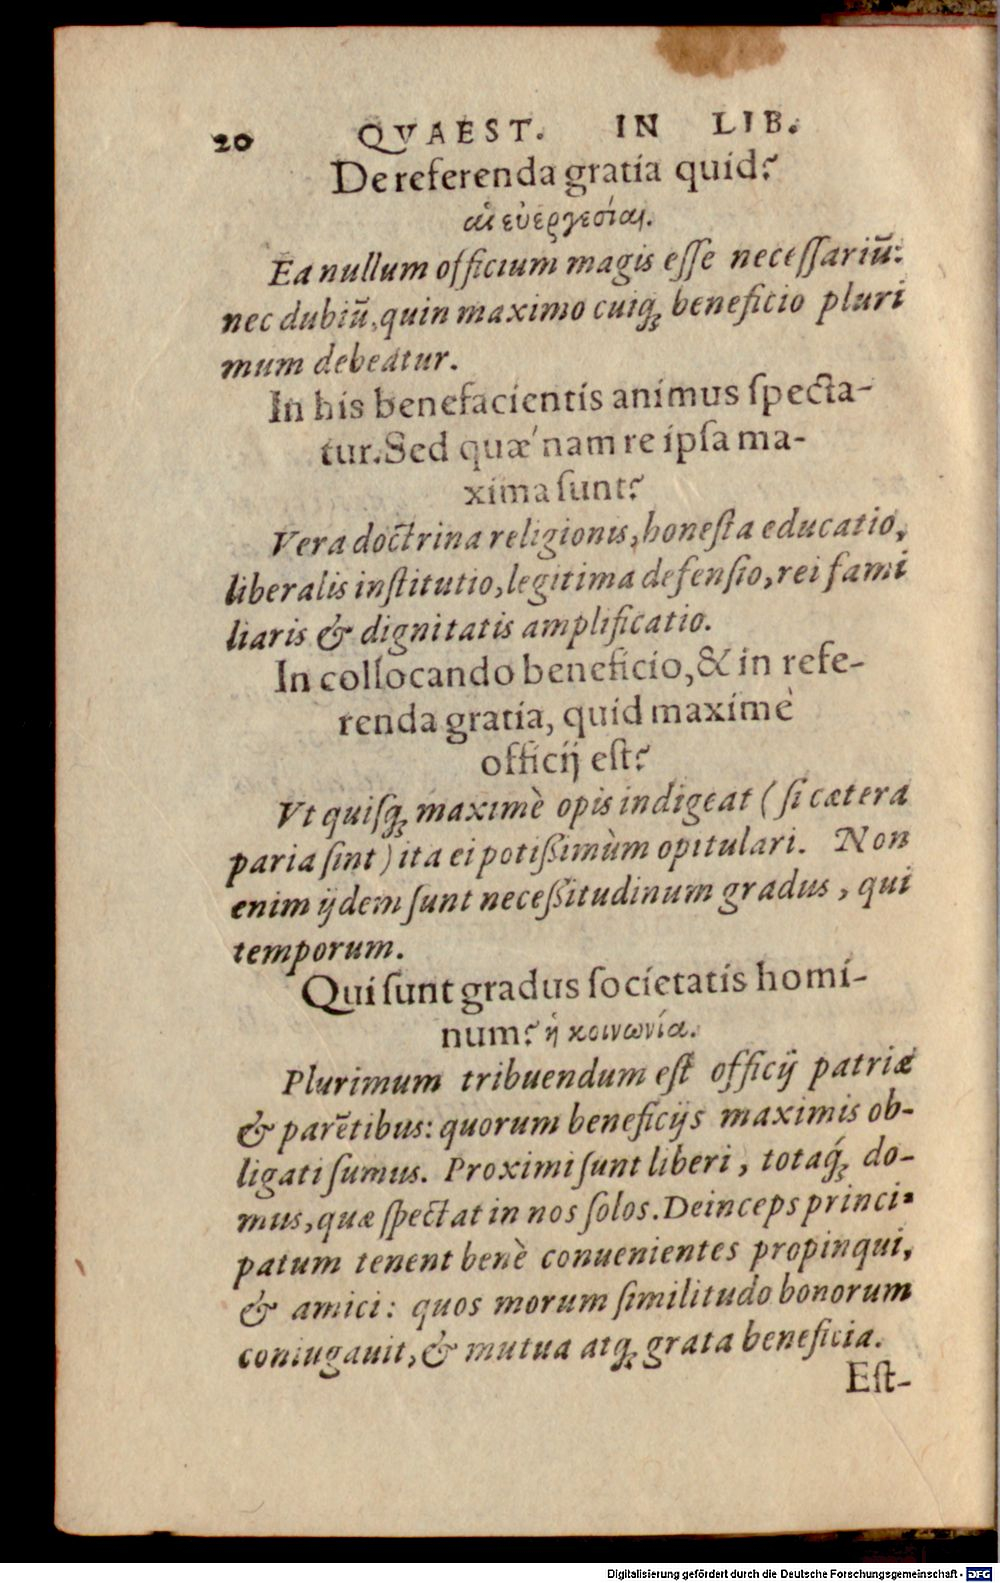 20 QVAEST. IN LIB.
De referenda gratia quid?
αἱ εὐεργεσίαι.
Ea nullum officium magis eſſe neceſſariū:
nec dubiū, quin maximo cuiq; beneficio pluri
mum debeatur.
In his benefacientis animus ſpecta-
tur. Sed quæ'nam re ipſa ma-
xima ſunt?
Vera doctrina religionis, honeſta educatio,
liberalis inſtitutio, legitima defenſio, rei fami
liaris & dignitatis amplificatio.
In collocando beneficio, & in refe-
renda gratia, quid maximè
officij eſt?
Vt quiſq; maximè opis indigeat (ſi cætera
paria ſint) ita ei potißimùm opitulari. Non
enim ijdem ſunt neceßitudinum gradus, qui
temporum.
Qui ſunt gradus ſocietatis homi-
num? ἡ κοινωνία.
Plurimum tribuendum eſt officij patriæ
& parētibus: quorum beneficijs maximis ob-
ligati ſumus. Proximi ſunt liberi, totaq́; do-
mus, quæ ſpectat in nos ſolos. Deinceps princi-
patum tenent benè conuenientes propinqui,
& amici: quos morum ſimilitudo bonorum
coniugauit, & mutua atq; grata beneficia.
Eſt-
Digitalisierung gefördert durch die Deutsche Forschungsgemeinschaft - DFG